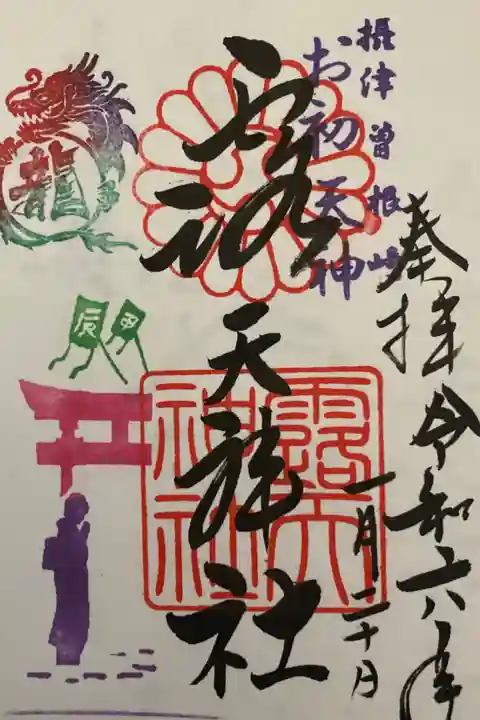 摂津曽根崎
お初天神
奉拝
令和六年
一月二十日
露天神社
露天
神社
龍
甲
辰